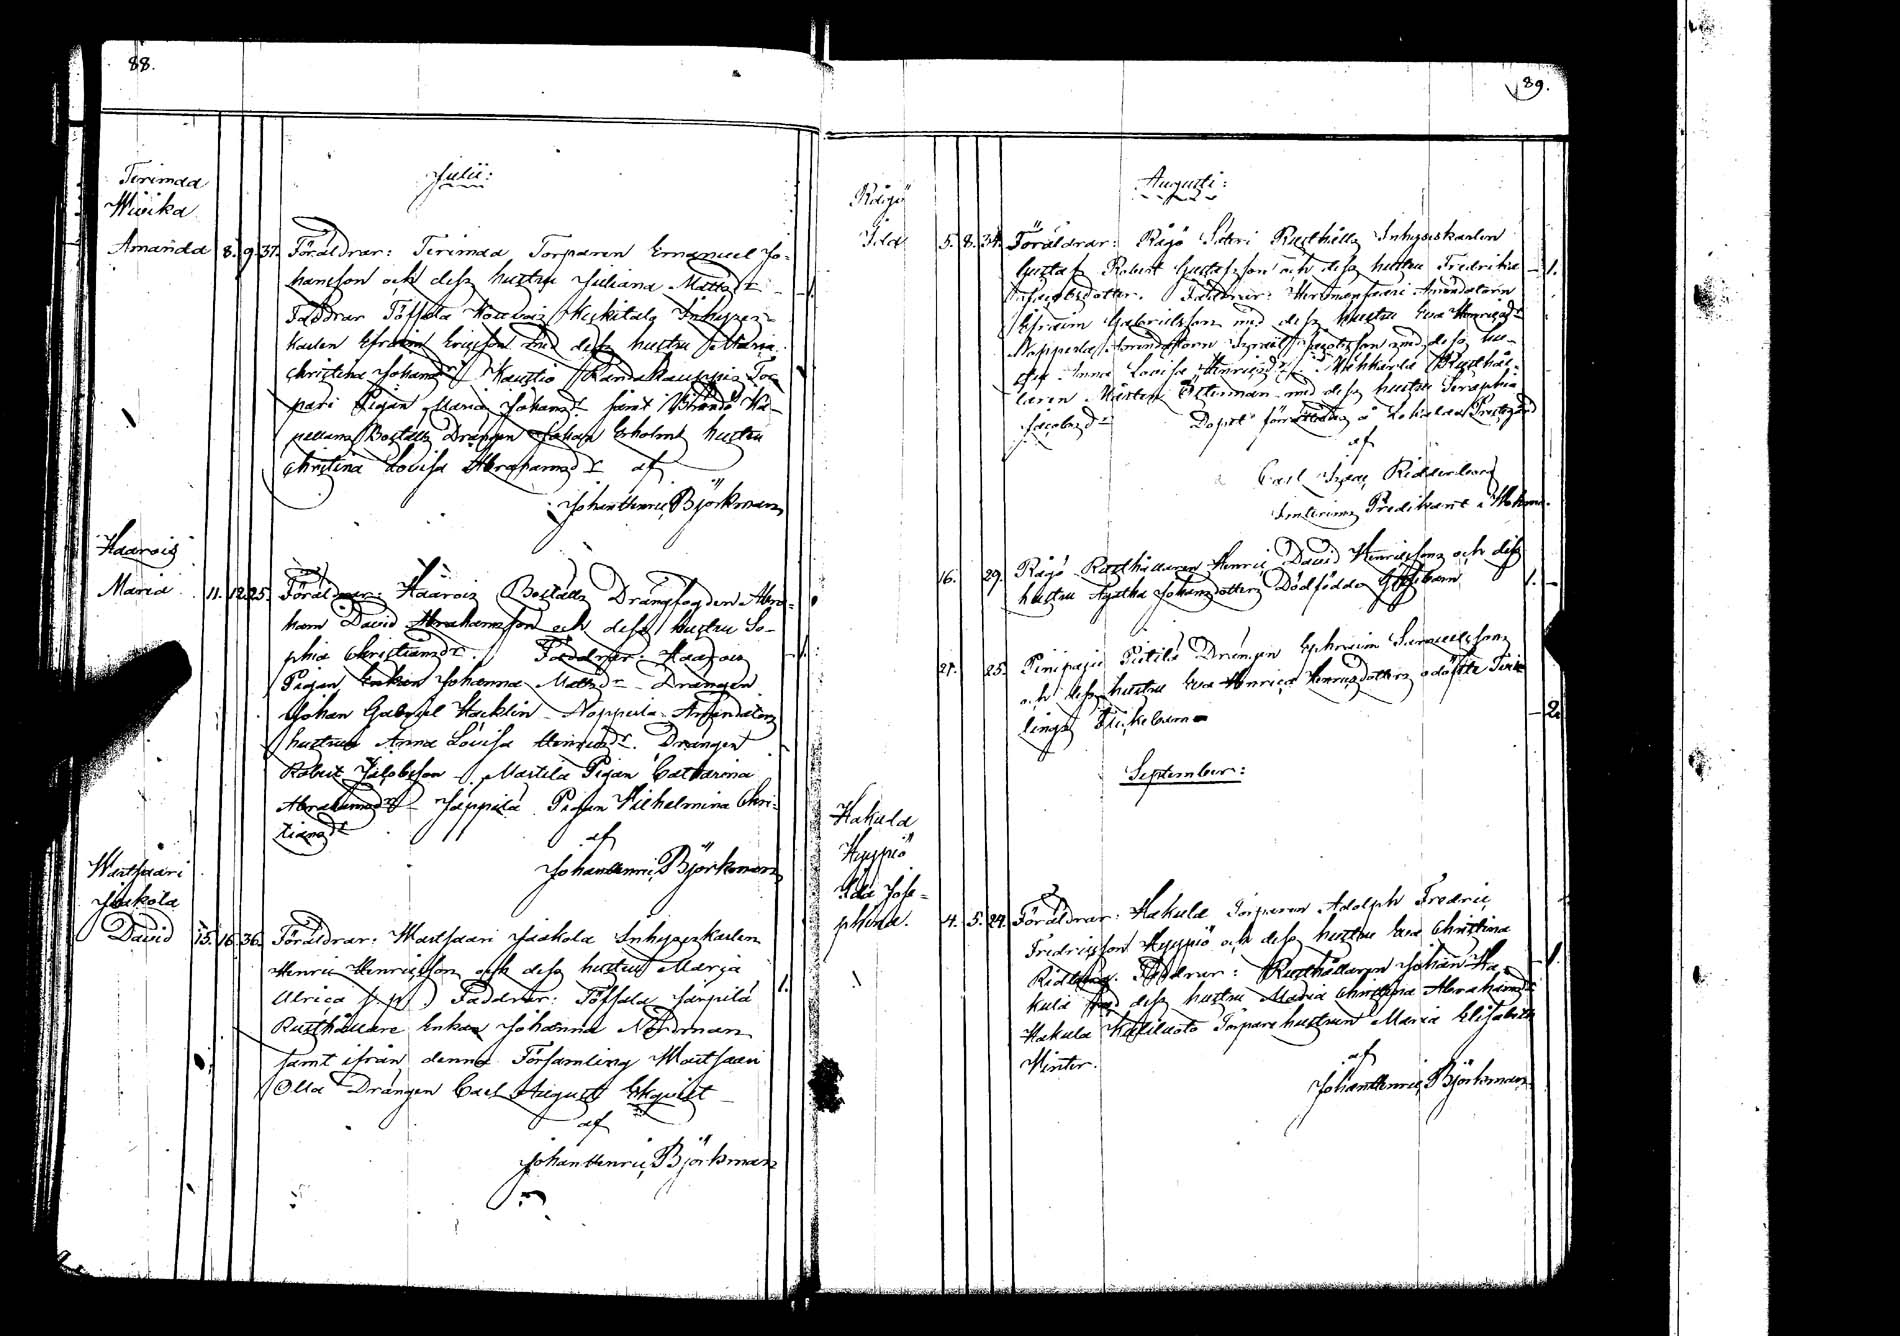 88.
Julii:
Terimaa
Wivika
Amanda 8. 9. 37. Föräldrar: Terimaa Torparen Emanuel Jo-
hansson och dess hustru Juliana Mattsdr
Faddrar Töffsala Keskitalo Inhyses-
karlen Efraim Ericsson med dess hustru Maria
Christina Johansdr Kaustio Tor-
pari Pigan Maria Johansdr samt Ka-
pellans Boställs Drängen Johan Ekholms hustru
Christina Lovisa Abrahamsdr af
Johan Henric Björkman
Haarois
Maria 11. 12. 25. Föräldrar: Haarois Boställs Drängfogden Abra-
ham David Abrahamsson och dess hustru So-
phia Christiansdr. Faddrar: Haarois
Pigan Enkan Johanna Mattsdr Drängen
Johan Gabriel Hacklin Nopperla Arrendators
hustrun Anna Lovisa Henricsdr. Drängen
Robert Jacobsson Mattila Pigan Catharina
Abrahamsdr Jäppilä Pigan Wilhelmina Chri-
stiansdr
af
Johan Henric Björkman
Wartsaari
Jaakola
David 15. 16. 36. Föräldrar: Wartsaari Jaakola Inhyseskarlen
Henric Henricsson och dess hustru Maria
Ulrica Faddrar: Töffsala Järpilä 1.
Rusthållare Enkan Johanna Nordman
samt ifrån denna Församling Wartsaari
Olla Drängen Carl August Ekqvist
af
Johan Henric Björkman
89.
Augusti:
Rågö
Ida 5. 8. 34. Föräldrar: Rågö Säteri Rusthålls Inhyseskarlen
Gustaf Robert Gustafsson och dess hustru Fredrika 1.
Jacobsdotter. Faddrar: Arrendatorn
Efraim Gabrielsson med dess hustru Eva Henricsdr
Nopperla Arrendatorn Israel Jacobsson med dess hu-
stru Anna Lovisa Henricsdr Rusthål-
laren Mårten Österman med dess hustru Seraphia
Jacobsdr Dopet förrättades å Lokalax Prestgård
af
Carl Isaac Riddersborg
Interims Predikant i
16. 29. Rågö Rusthållaren Henric David Henricssons och dess
hustru Agatha Johansdotters Dödfödda Gossebarn 1.
21. 25. Pinipaju Pietilä Drängen Ephraim Samuelssons
och dess hustru Eva Henrica Henricsdotters odöpte Tvil-
lings Flickebarn 2.
September:
Hakula
Hyypiö
Ida Jose-
phina. 4. 5. 24. Föräldrar: Hakula Torparen Adolph Fredric
Fredricsson Hyypiö och dess hustru Eva Christina
Faddrar: Rusthållaren Johan Ha- 1.
kula med dess hustru Maria Christina Abrahamsdr
Hakula Kalliluoto Torpare hustrun Maria Elisabeth
Winter.
af
Johan Henric Björkman